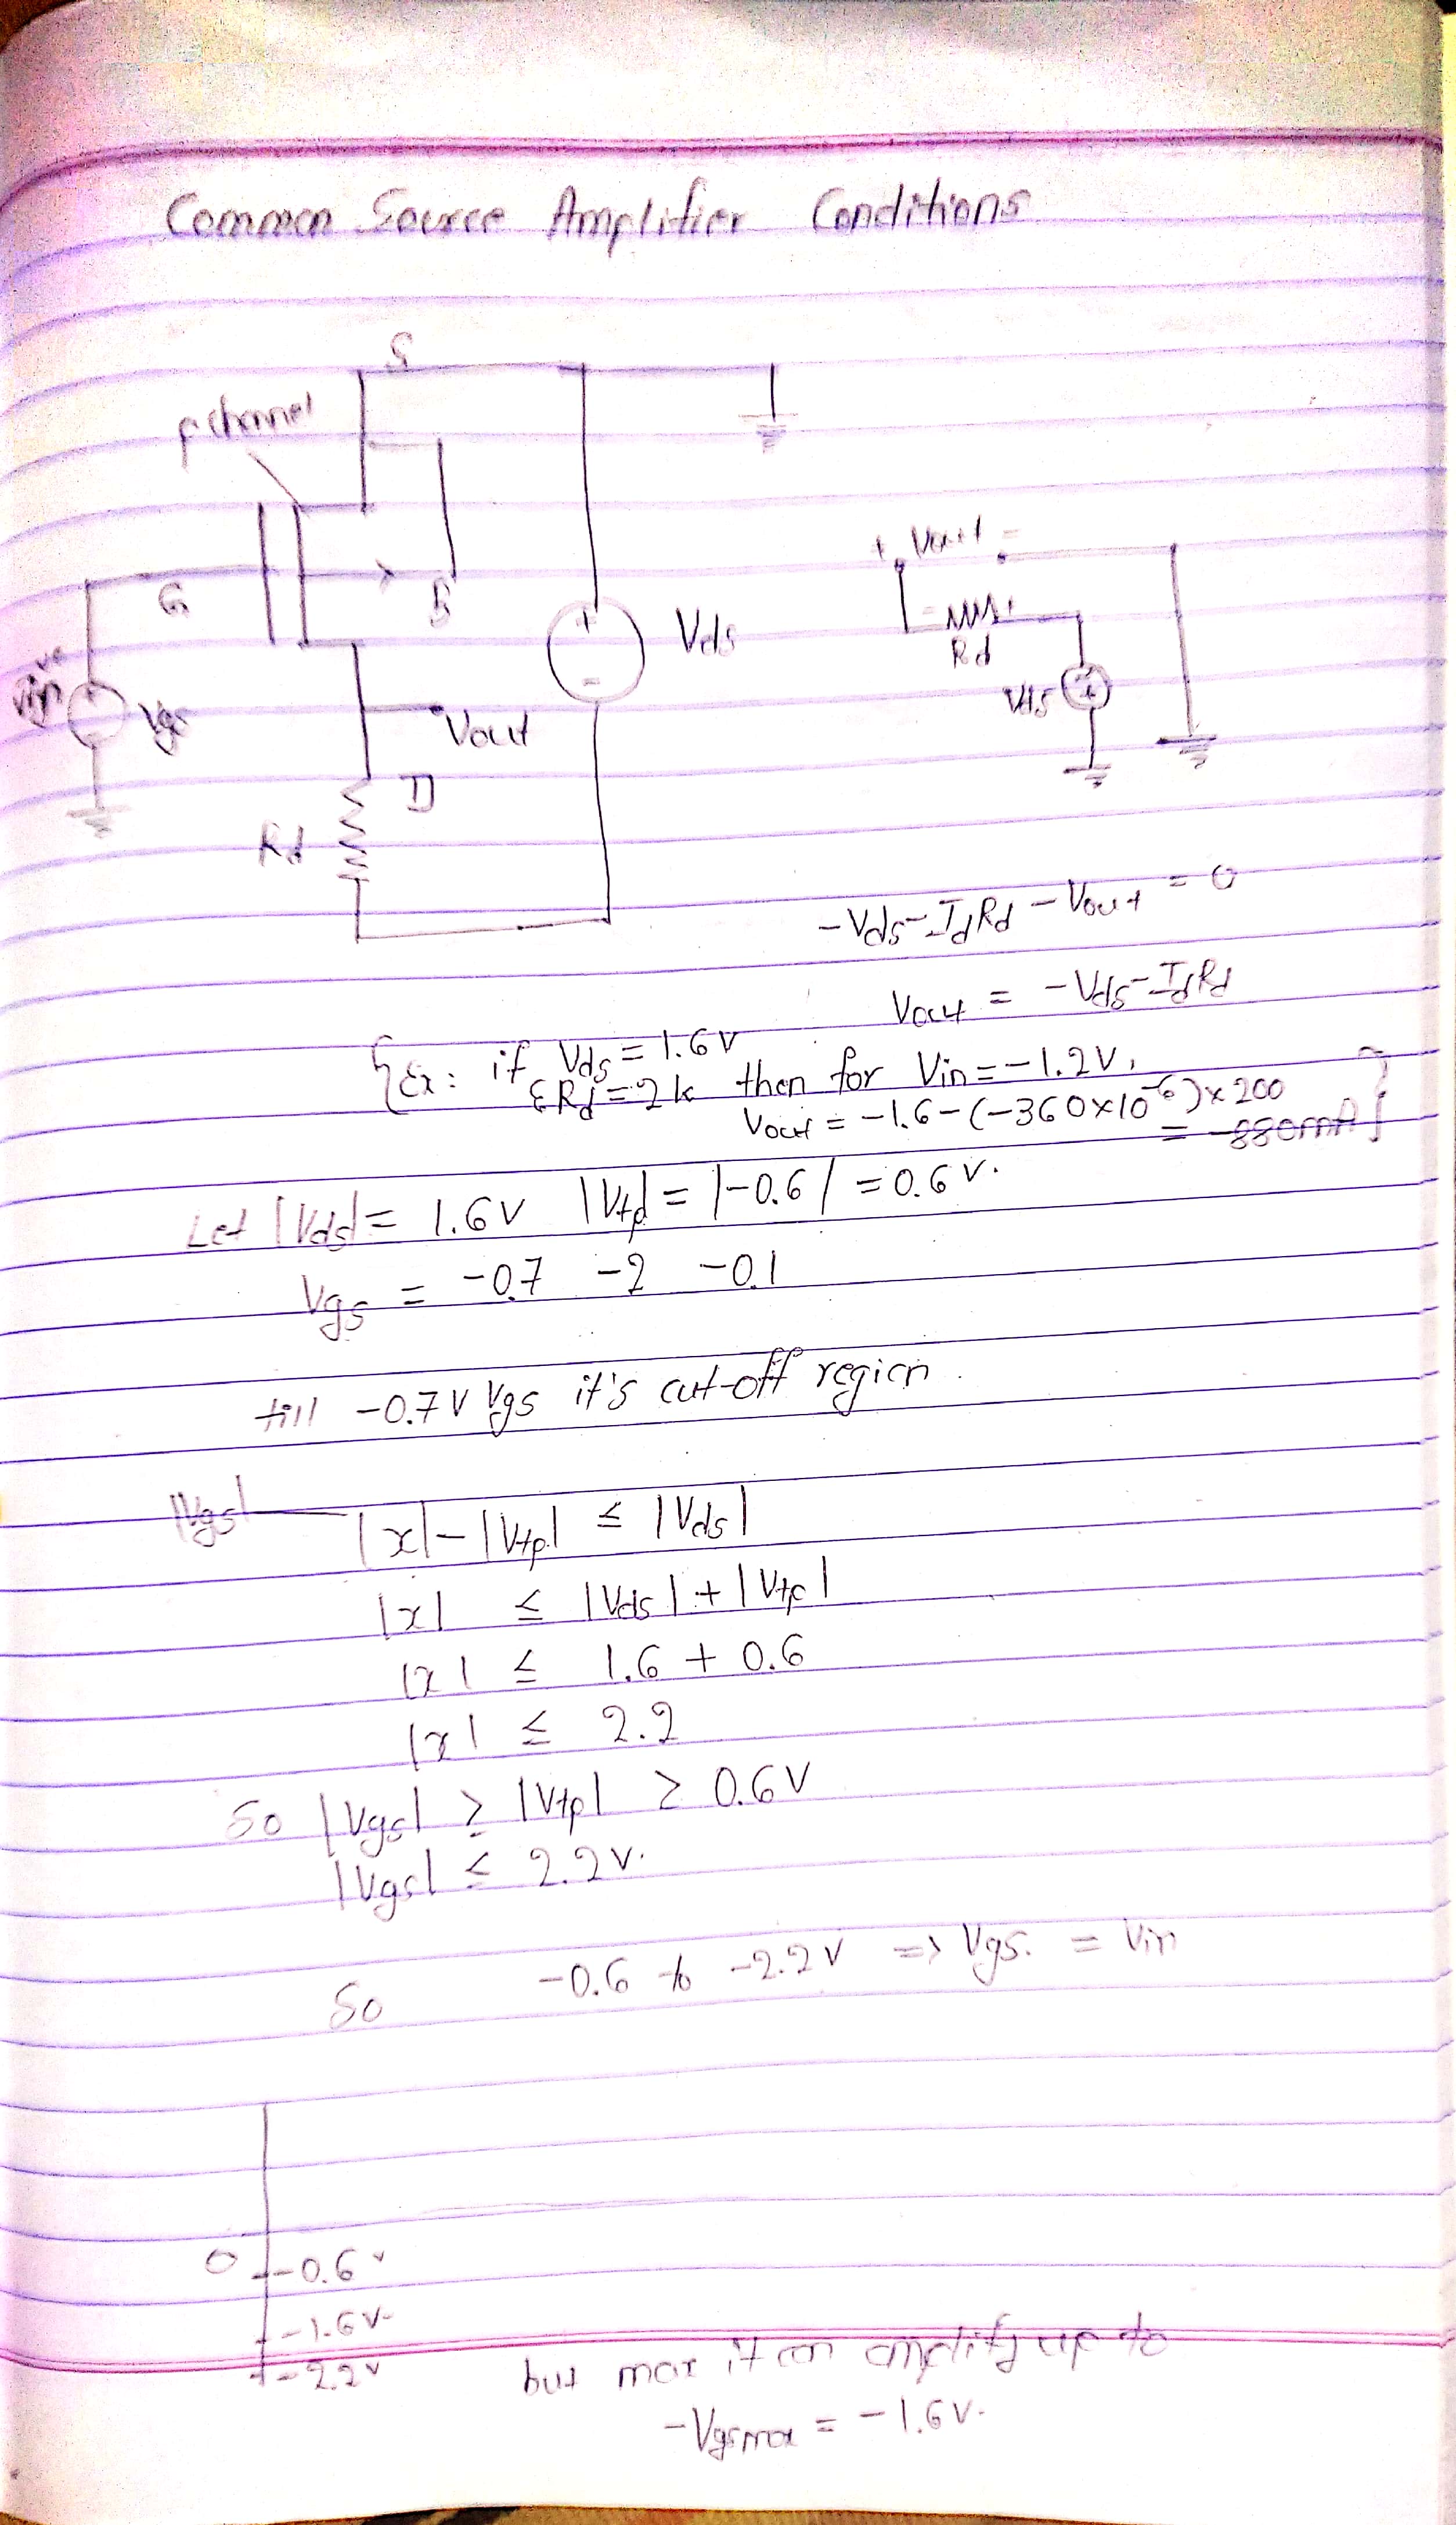 Common Source Amplifier Conditions
S
p channel
G
B
Vds
+
-
Vin
Vgs
Vout
D
Rd
+ Vout -
- +
Rd
Vds
-Vds-IdRd-Vout = 0
Vout = -Vds-IdRd
{Ex: if Vds = 1.6V
& Rd = 2k then for Vin = -1.2V,
Vout = -1.6-(-360x10^-6)x200
= -880mA}
Let |Vds| = 1.6V |Vtp| = |-0.6| = 0.6V.
Vgs = -0.7 -2 -0.1
till -0.7V Vgs it's cut-off region.
|Vgs|
|x|-|Vtp| ≤ |Vds|
|x| ≤ |Vds|+|Vtp|
|x| ≤ 1.6 + 0.6
|x| ≤ 2.2
So |Vgs| ≥ |Vtp| ≥ 0.6V
|Vgs| ≤ 2.2V.
So -0.6 to -2.2V => Vgs. = Vin
0
-0.6V
-1.6V-
-2.2V
but max it can amplify up to
-Vgsmax = -1.6V.